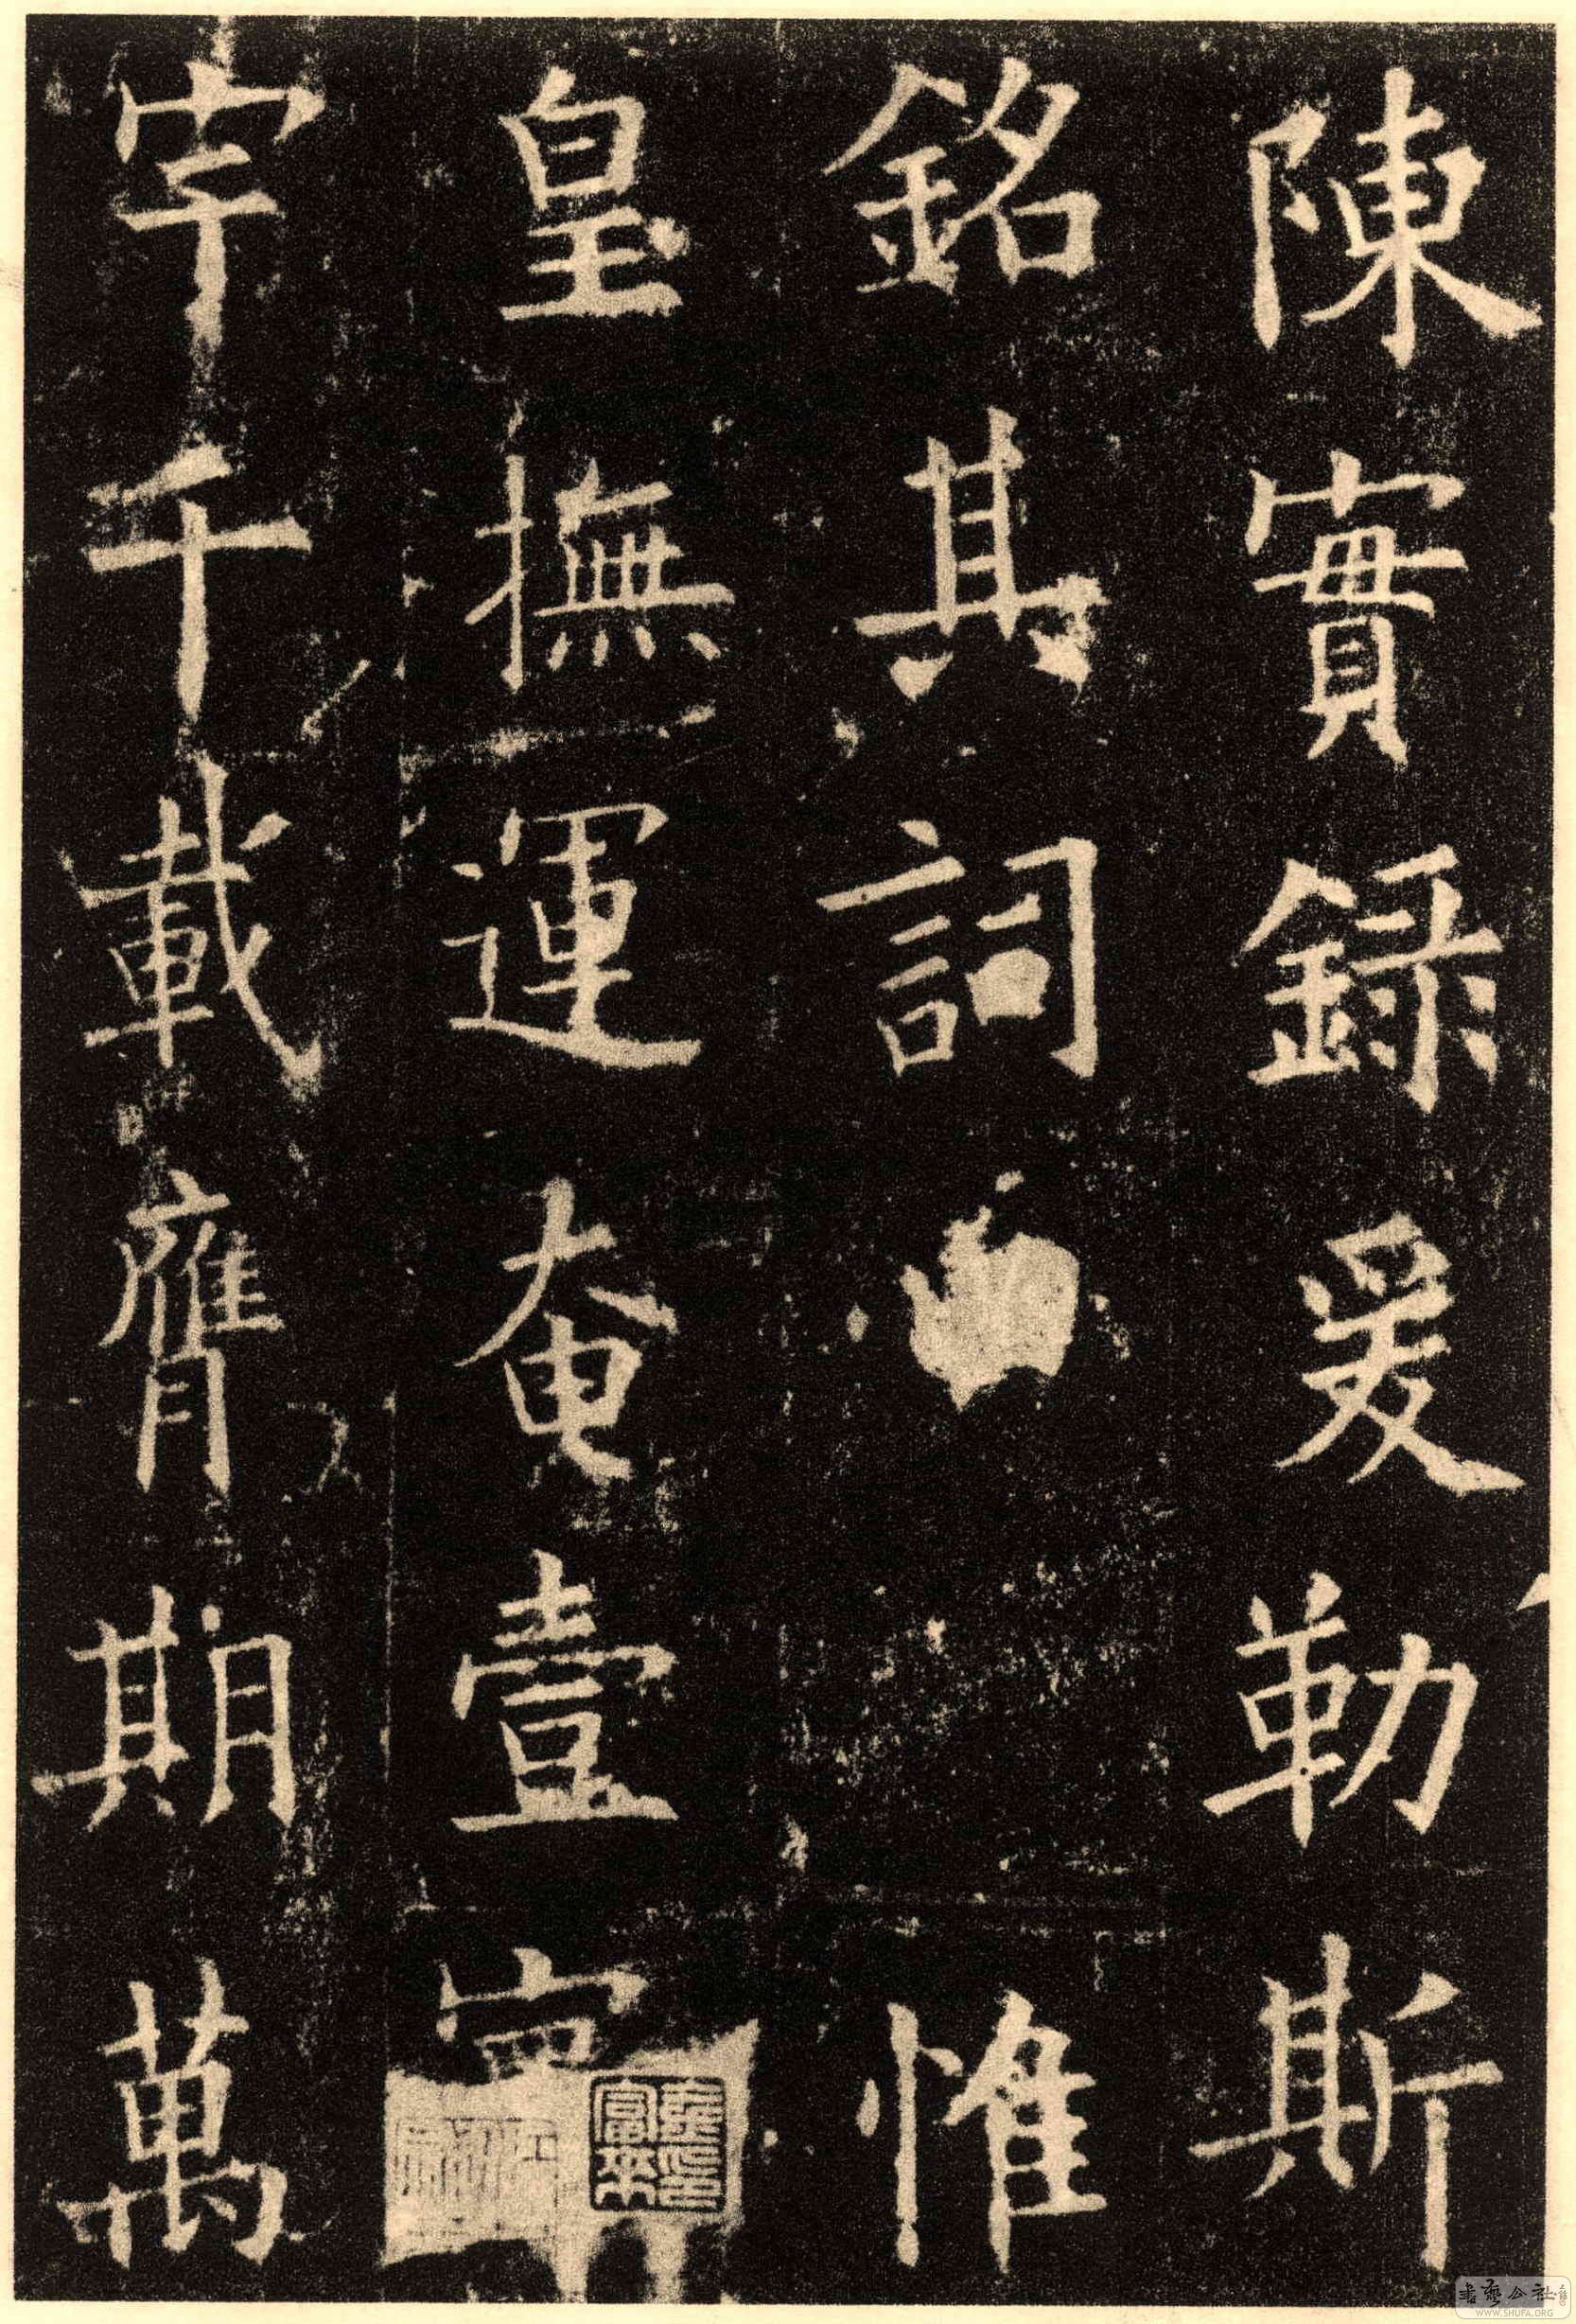 陳實録爰勒斯
銘其詞曰惟
皇撫運奄壹寰
宇千載膺期萬
書藝公社
WWW.SHUFA.ORG